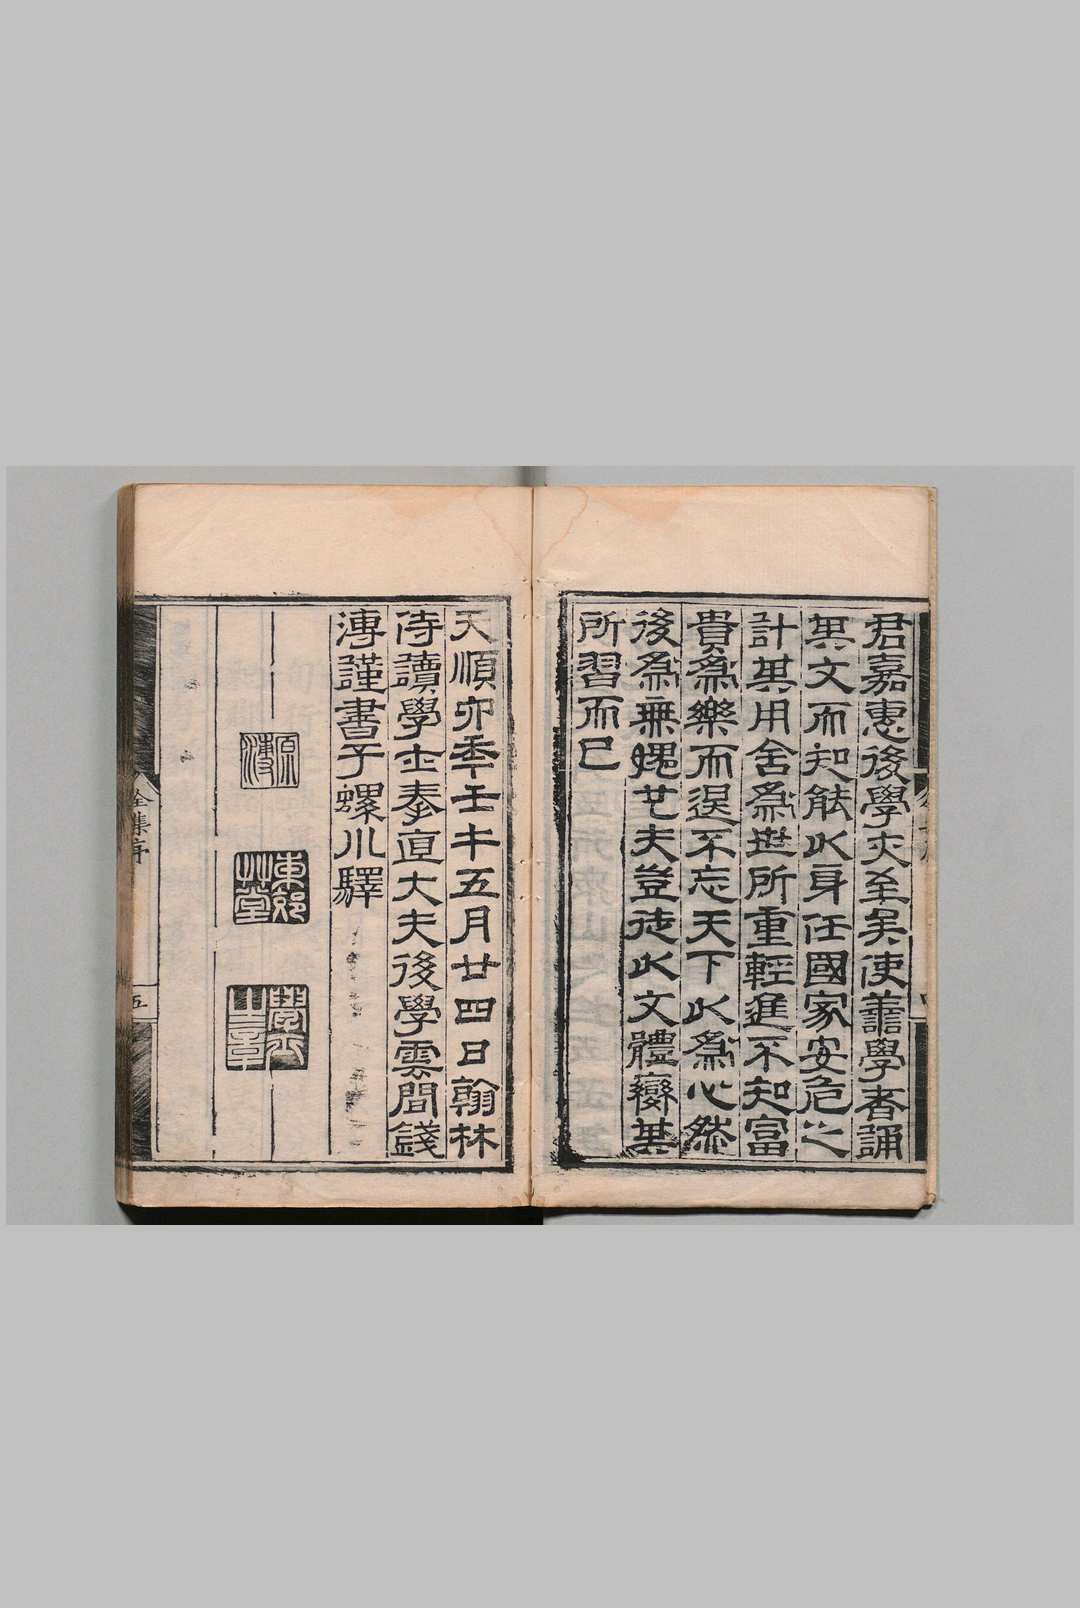 君嘉惠後學亦至矣使善學者誦
其文而知能以身任國家安危之
計其用舍為世所重輕進不知富
貴為樂而退不忘天下以為心然
後為無愧也夫豈徒以文體變其
所習而已
天順六年壬午五月廿四日翰林
侍讀學士奉直大夫後學雲間錢
溥謹書于螺川驛
原溥
東郊艸堂
全集序
五